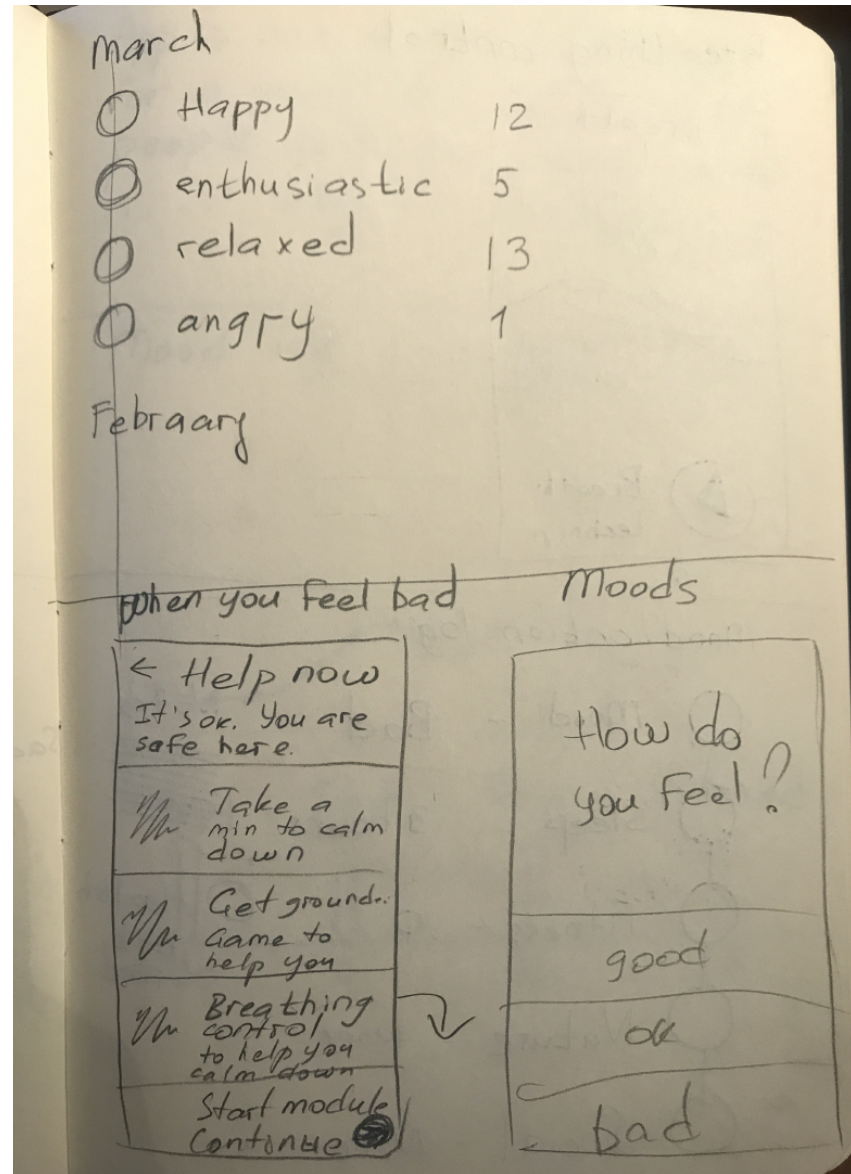 march
Happy 12
enthusiastic 5
relaxed 13
angry 1
Febraary
When you feel bad
← Help now
It's ok. You are
safe here.
Take a
min to calm
down
Get ground..
Game to
help you
Breathing
control
to help you
calm down
Start module
Continue
Moods
How do
you feel?
good
ok
bad